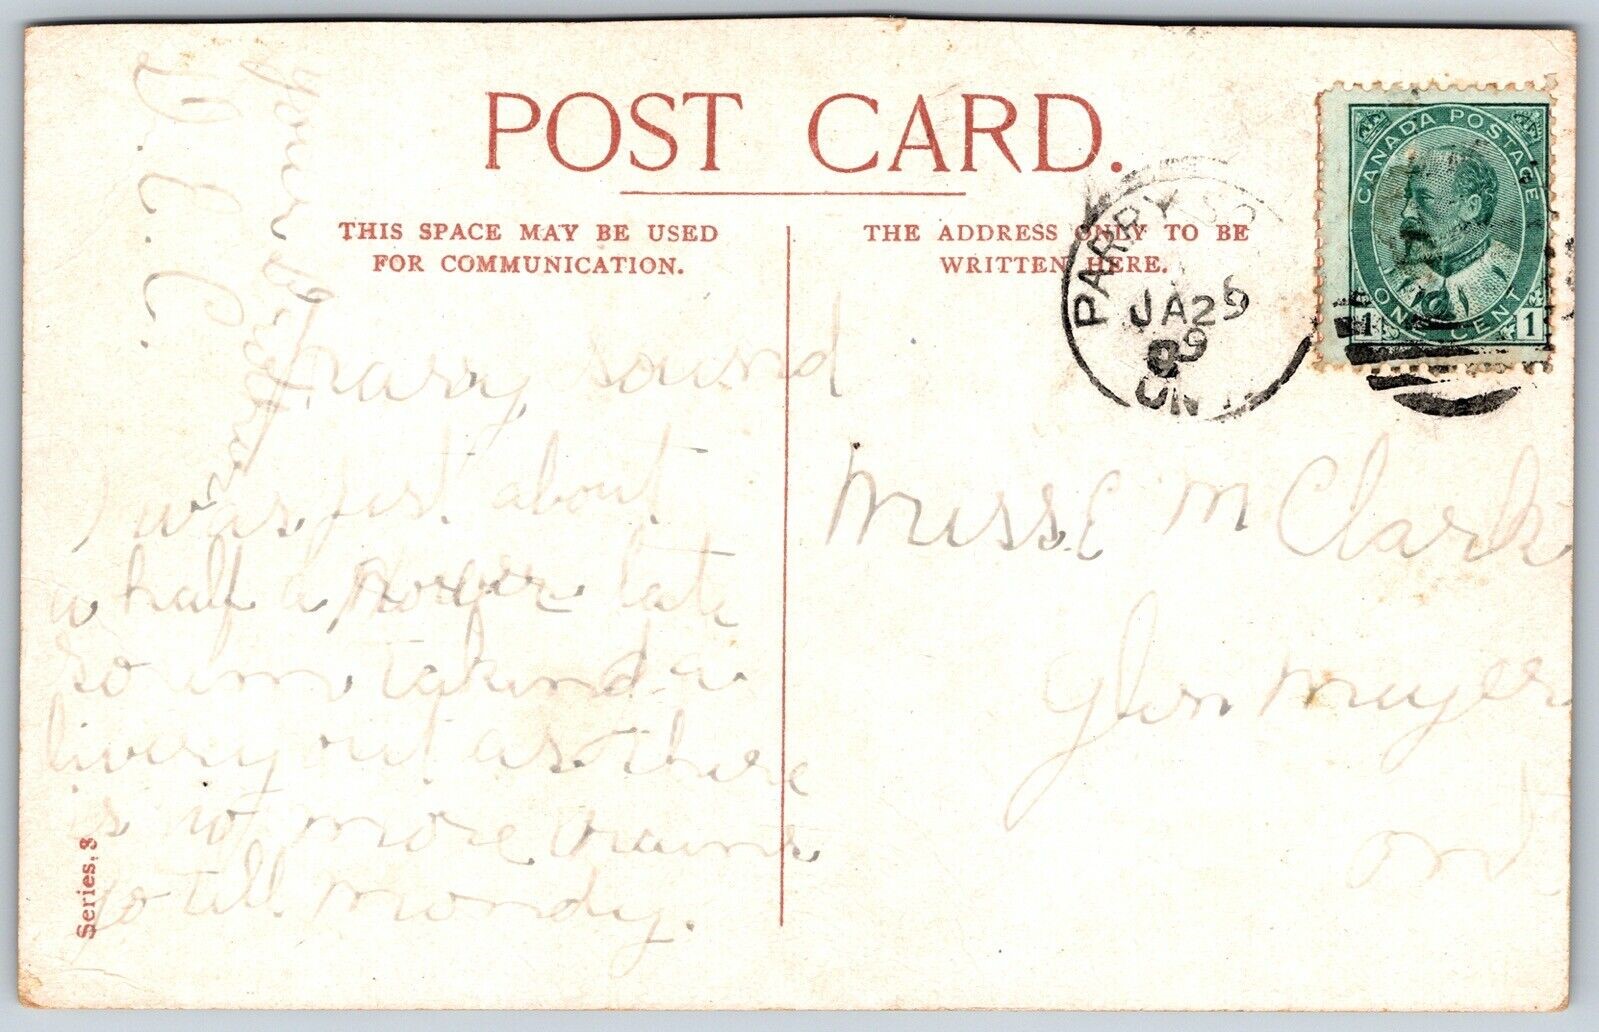 POST CARD.
THIS SPACE MAY BE USED
FOR COMMUNICATION.
THE ADDRESS ONLY TO BE
WRITTEN HERE.
PARRY SO
JA 25
09
ONT.
CANADA POSTAGE
1 ONE CENT 1
Parry Sound
I was just about
a half a hower late
so im takind a
livery out as there
is not more trains
go till Mondy.
your
Miss E M Clark
Glen Meyer
Ont
Series. 8